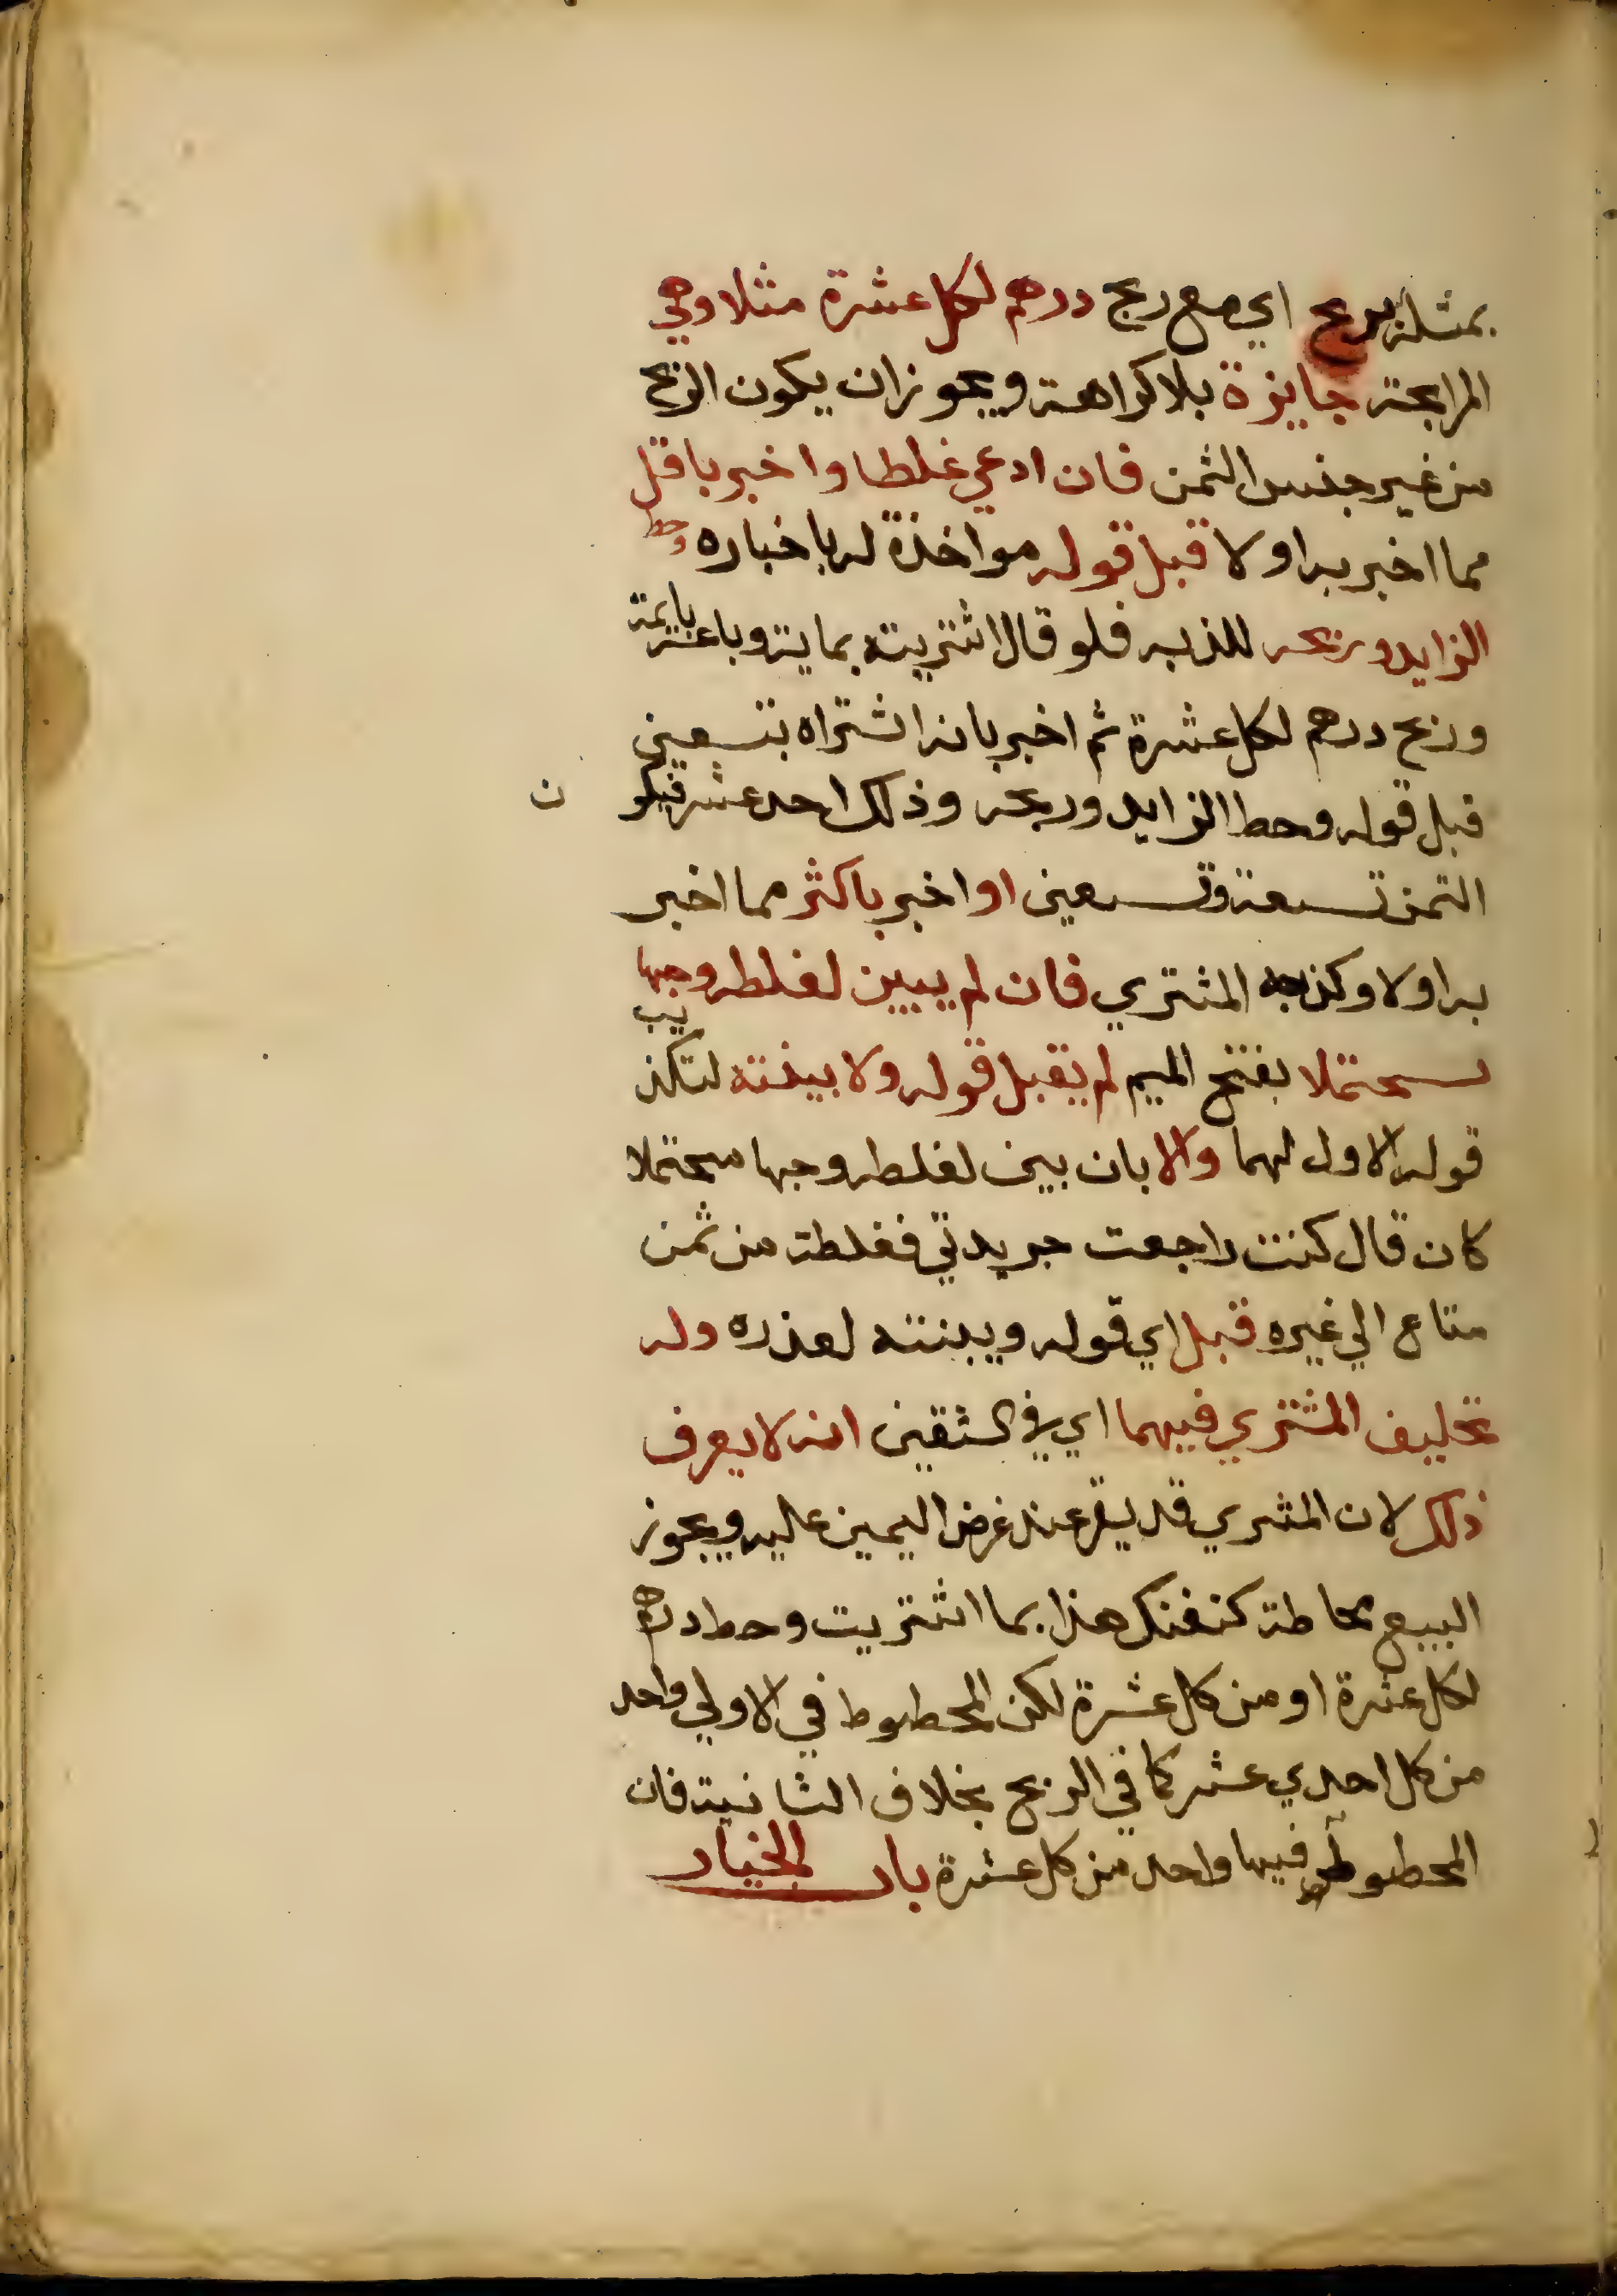 بمثله بربح اي مع ربح درهم لكل عشرة مثلا وهي
المرابحة جايزة بلا كراهة ويجوز ان يكون الربح
من غير جنس الثمن فان ادعي غلطا واخبر باقل
مما اخبر به اولا قبل قوله مواخذة له باخباره وحط
الزايد وربحه للذبه فلو قال اشتريته بماية وباعه بماية
وربح درهم لكل عشرة ثم اخبر بانه اشتراه بتسعين
قبل قوله وحط الزايد وربحه وذلك احد عشر فيكو ن
الثمن تسعة وتسعين او اخبر باكثر مما اخبر
به اولا وكذبه المشتري فان لم يبين لغلطه وجها
محتملا بفتح الميم لم يقبل قوله ولا بينته لتكذيب
قوله الاول لهما والا بان بين لغلطه وجها محتملا
كان قال كنت راجعت جريدتي فغلطت من ثمن
متاع الي غيره قبل اي قوله وبينته لعذره وله
تحليف المشتري فيهما اي في الشقين انه لا يعرف
ذلك لان المشري قد يقر عند عرض اليمين عليه ويجوز
البيع محاطة كنفنك هذا بما اشتريت وحط درهم
لكل عشرة او من كل عشرة لكن المحطوط في الاولي واحد
من كل احدي عشر كما في الربح بخلاف الثانية فان
المحطوط فيها واحد من كل عشرة باب الخيار